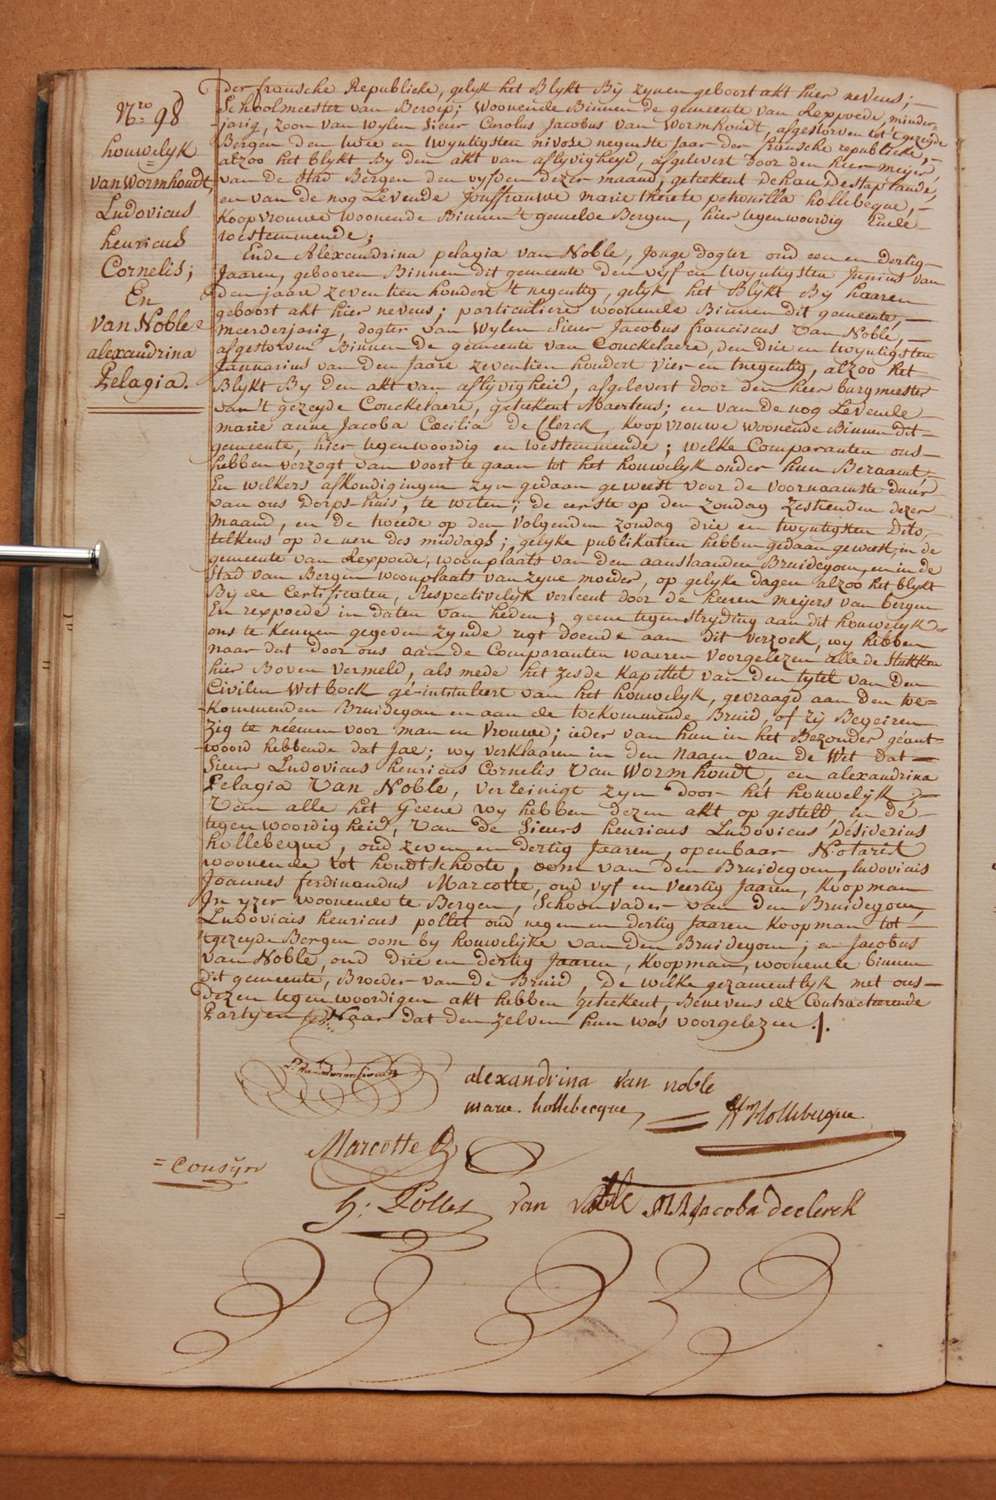 Nro 98
houwelyk
van Wormhoudt,
Ludovicus
henricus
Cornelis;
En
van Noble
alexandrina
Pelagia.
der fransche Republicke, gelyk het Blykt By zynen geboort akt hier nevens;
Schoolmeester van Beroep; Woonende Binnen de gemeente van Rexpoede, minder-
jarig, zoon van Wylen Sieur Carolus Jacobus van Wormhoudt, afgestorven tot 't gezeyde
Bergen den twee en twyntigsten nivose negenste jaar der fransche republicke,
alzoo het blykt By den akt van aflyvigheyd, afgelevert door den heer meijer
van de Stad Bergen den vyfden dezer maand, geteekent Dehau De Staplande,
en van de nog Levende Jouffrauwe marie therete petronilla hollebeque,
koopvrouwe woonende Binnen 't gemelde Bergen, hier tegenwoordig Ende
toestemmende;
Ende Alexandrina pelagia van Noble, Jonge dogter oud een en dertig
Jaaren, gebooren Binnen dit gemeente den vyf en twyntigsten Junius van
den jaare zeventien hondert 't negentig, gelyk het Blykt By haaren
geboort akt hier nevens; particuliere woonende Binnen dit gemeente,
meerderjarig, dogter van Wylen Sieur Jacobus franciscus Van Noble,
afgestorven Binnen de gemeente van Couckelaere, den drie en twyntigsten
Januarius van den Jaare zeventien hondert vier en tnegentig, alzoo het
Blykt By den akt van aflyvigheid, afgelevert door den heer burgmeester
van 't gezeyde Couckelaere, geteekent Maertens; en van de nog Levende
marie anne Jacoba Cæcilia de Clerck, koopvrouwe woonende Binnen dit
gemeente, hier tegenwoordig en toestemmende; welke Comparanten ons
hebben verzogt van voort te gaan tot het houwelyk onder hun Beraamt,
En welkers afkondigingen zyn gedaan geweest voor de voornaamste duer
van ons Dorps-huis, te weten; de eerste op den zondag zesthenden dezer
maand, en de tweede op den volgenden zondag drie en twyntigsten dito,
telkens op de uen des middags; gelyke publikatien hebben gedaan geweest, in de
gemeente van Rexpoede, woonplaats van den aanstaanden Bruidegom, en in de
Stad van Bergen woonplaats van zyne moeder, op gelyke dagen alzoo het blykt
By de Certificaten, Respectivelyk verleent door de heeren meijers van bergen
En rexpoede in daten van heden; geene tegenstryding aan dit houwelyk
ons te kennen gegeven zynde regt doende aan dit verzoek, wy hebben
naar dat door ons aan de Comparanten waaren voorgelezen alle de Stukken
hier Boven vermeld, als mede het zesde kapittel van den tytel van den
Civilen Wetboek ge-intituleert van het houwelyk, gevraagd aan den toe-
kommenden Bruidegom en aan de toekommende Bruid, of zij Begeiren
Zig te neemen voor man en Vrouwe; ieder van hun in het Bezonder geant-
woord hebbende dat Jae; wy verklaaren in den naam van de Wet dat
Sieur Ludovicus henricus Cornelis Van Wormhoudt, en alexandrina
Pelagia Van Noble, vereinigt zyn door het houwelyk;
Van alle het Geene wy hebben dezen akt op gesteld, in de
tegenwoordigheid, Van de Sieurs henricus Ludovicus désiderius
hollebecque, oud zeven en dertig Jaaren, openbaar Notaris
woonende tot hondtschoote, oom van den Bruidegom, ludovicus
Joannes ferdinandus Marcotte, oud vyf en veertig Jaaren, koopman
In yzer woonende te Bergen, Schoonvader van den Bruidegom,
Ludovicus henricus pollet oud negen en dertig Jaaren koopman tot
tgezeyde Bergen oom by houwelyke van den Bruidegom; en Jacobus
van Noble, oud drie en dertig Jaaren, koopman, woonende binnen
dit gemeente, Broeder van de Bruid, De welke gezamentlyk met ons
dezen tegenwoordigen akt hebben geteekent, Benevens de Contracteerende
Partyen Naar dat den zelven hun was voorgelezen.
alexandrina van noble
marie. hollebecque,
Hollebecque
Marcotte
Cousyn
h: Pollet
van noble
M A Jacoba declerck